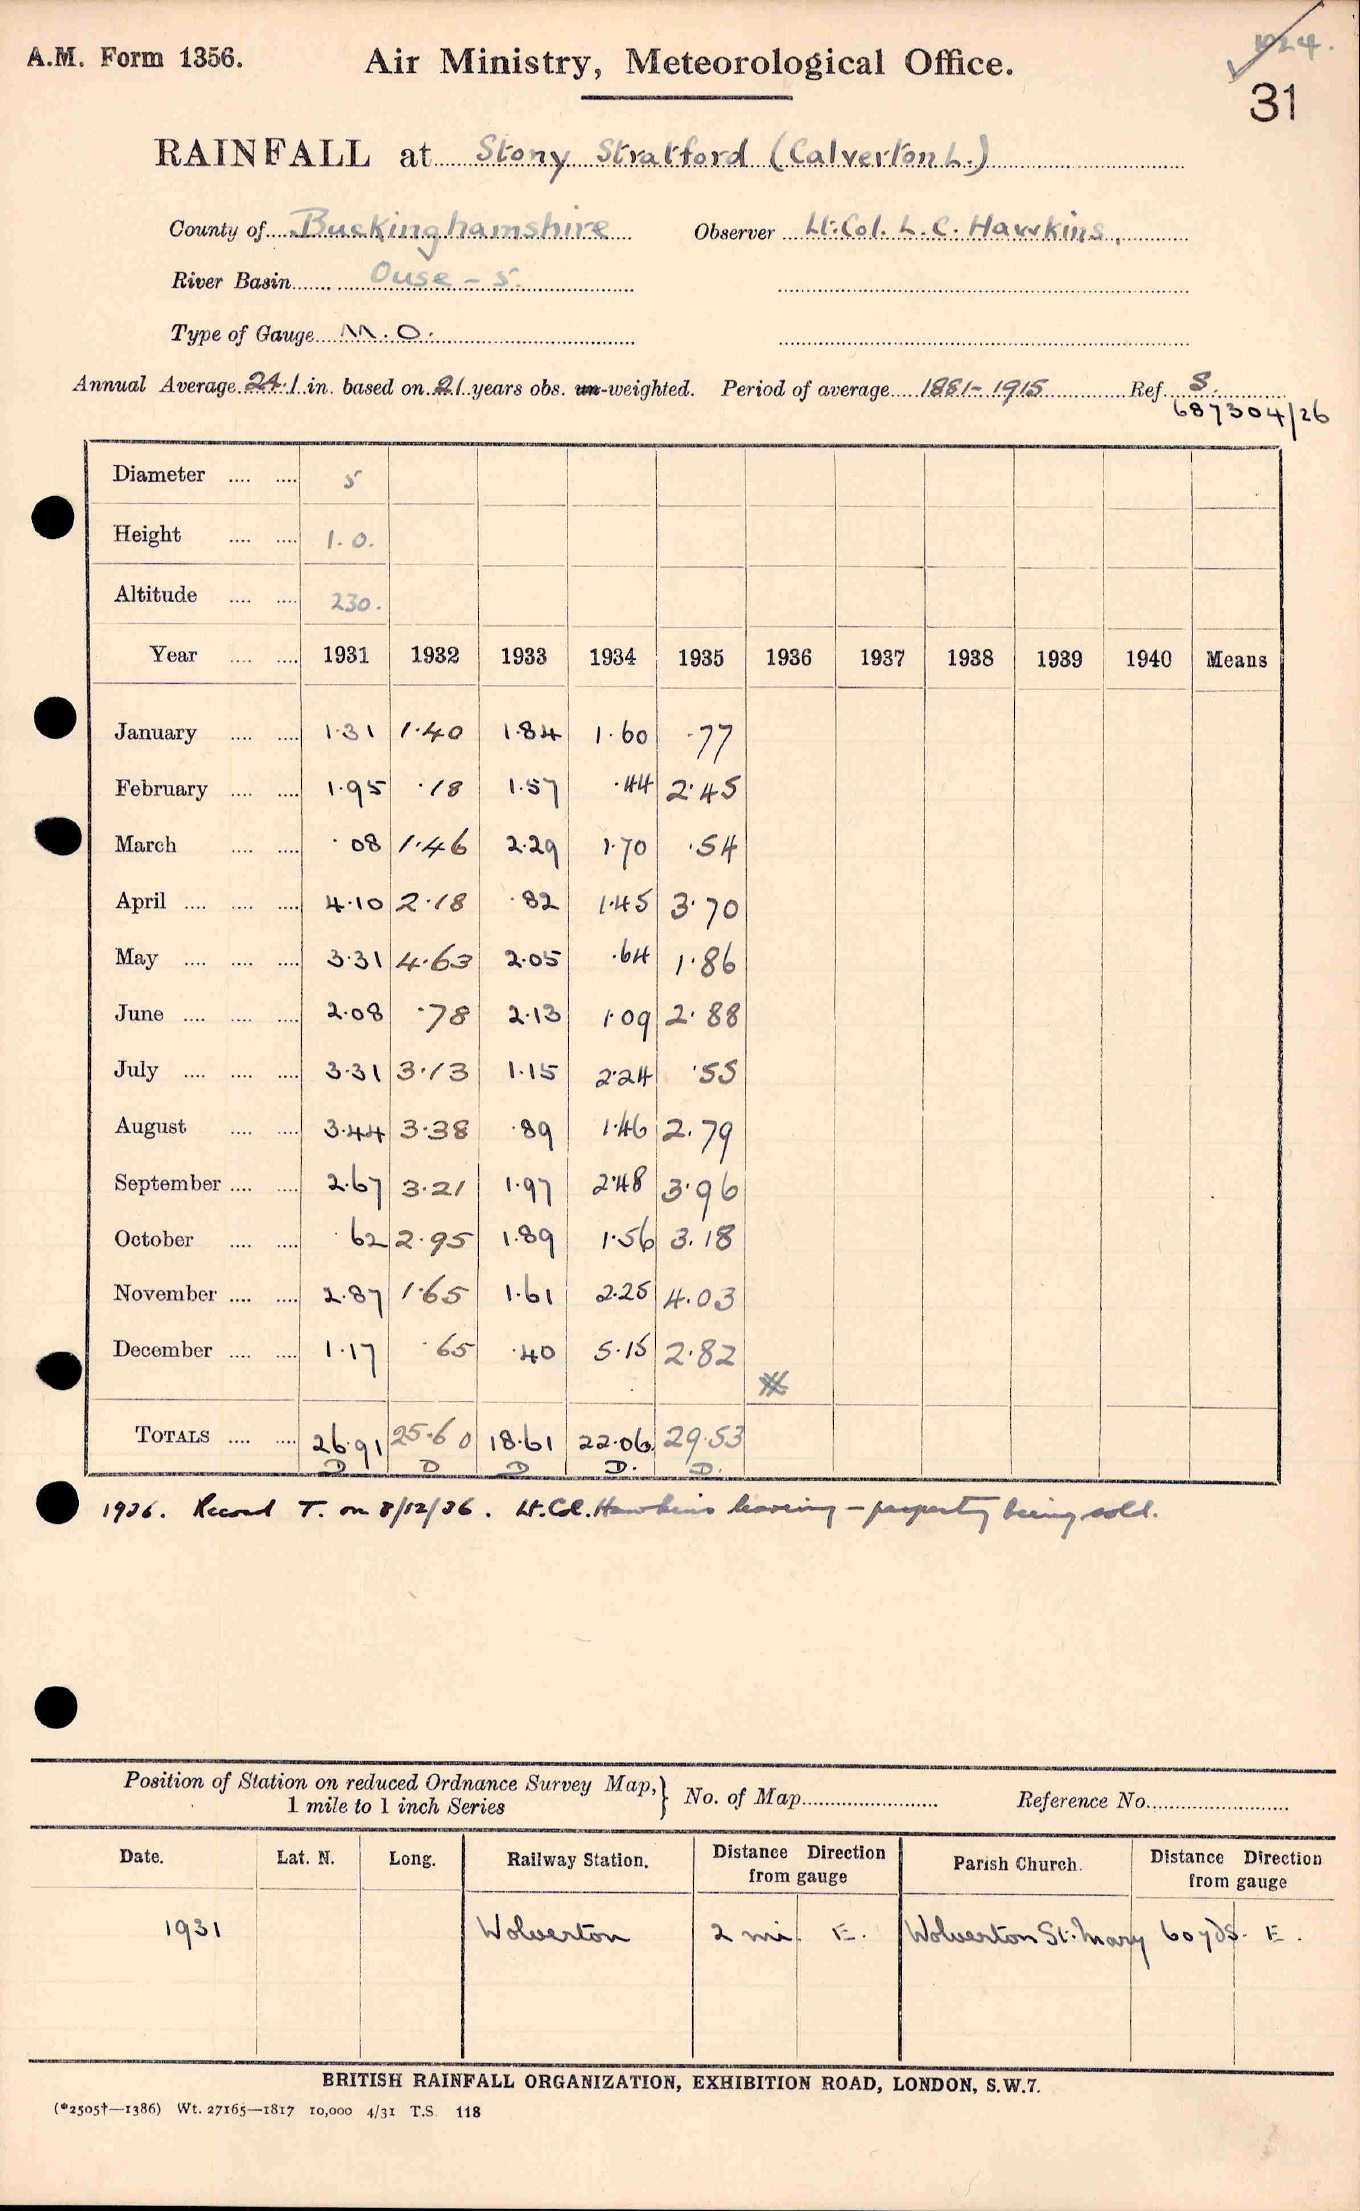 A.M. Form 1356.
Air Ministry, Meteorological Office.
1924.
31
RAINFALL at Stony Stratford (Calverton L.)
County of Buckinghamshire Observer Lt. Col. L. C. Hawkins,
River Basin Ouse - 5.
Type of Gauge M.O.
Annual Average 24.1 in. based on 21 years obs. un-weighted. Period of average 1881-1915 Ref. S.
687304/26
Diameter 5
Height 1.0.
Altitude 230.
Year 1931 1932 1933 1934 1935 1936 1937 1938 1939 1940 Means
January 1.31 1.40 1.84 1.60 .77
February 1.95 .18 1.57 .44 2.45
March .08 1.46 2.29 1.70 .54
April 4.10 2.18 .82 1.45 3.70
May 3.31 4.63 2.05 .64 1.86
June 2.08 .78 2.13 1.09 2.88
July 3.31 3.13 1.15 2.24 .55
August 3.44 3.38 .89 1.46 2.79
September 2.67 3.21 1.97 2.48 3.96
October .62 2.95 1.89 1.56 3.18
November 2.87 1.65 1.61 2.25 4.03
December 1.17 .65 .40 5.15 2.82
TOTALS 26.91 25.60 18.61 22.06 29.53
D D D D. D.
1936. Record T. on 8/12/36. Lt. Col. Hawkins leaving - property being sold.
Position of Station on reduced Ordnance Survey Map, } No. of Map Reference No.
1 mile to 1 inch Series
Date. Lat. N. Long. Railway Station. Distance Direction from gauge Parish Church. Distance Direction from gauge
1931 Wolverton 2 mi. E. Wolverton St. Mary 60 yds. E.
BRITISH RAINFALL ORGANIZATION, EXHIBITION ROAD, LONDON, S.W.7.
(*2505†—1386) Wt. 27165—1817 10,000 4/31 T.S. 118